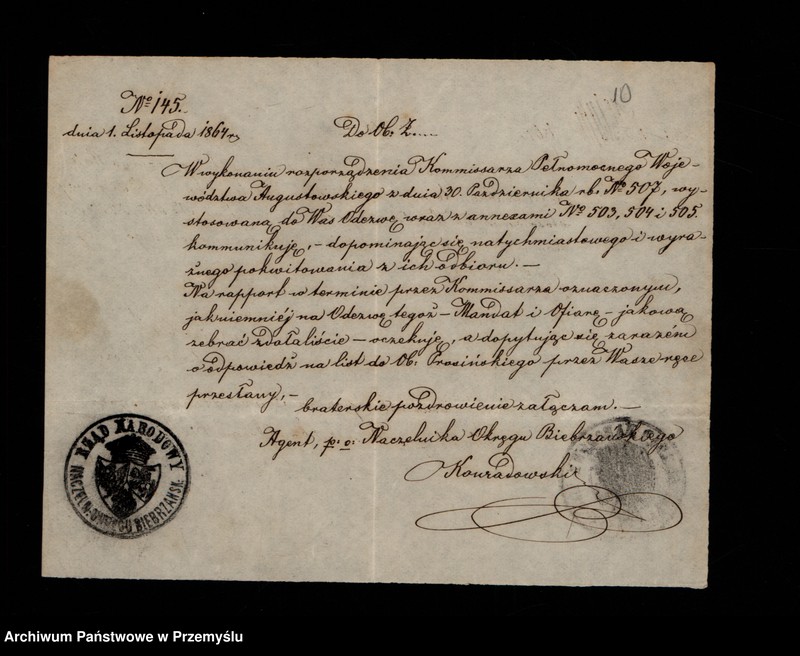 10
No 145.
dnia 1. Listopada 1864 r.
Do Ob. Z.....
W wykonaniu rozporządzenia Kommissarza Pełnomocnego Woje-
wództwa Augustowskiego z dnia 30. Października rb. No 507, wy-
stosowaną do Was Odezwę wraz z annexami No 503, 504 i 505.
kommunikuję, - dopominając się natychmiastowego i wyra-
źnego pokwitowania z ich odbioru. -
Na rapport w terminie przez Kommissarza oznaczonym,
jakniemniéj na Odezwę tegoż - Mandat i Ofiarę - jakową
zebrać zdołaliście - oczekuję, a dopytując się zarazém
o odpowiedź na list do Ob. Prosińskiego przez Wasze ręce
przesłany, -
braterskie pozdrowienie załączam. -
Agent, p. o. Naczelnika Okręgu Biebrzańskiego
Konradowski
RZĄD NARODOWY
NACZELN. OKRĘGU BIEBRZAŃSK.
Archiwum Państwowe w Przemyślu